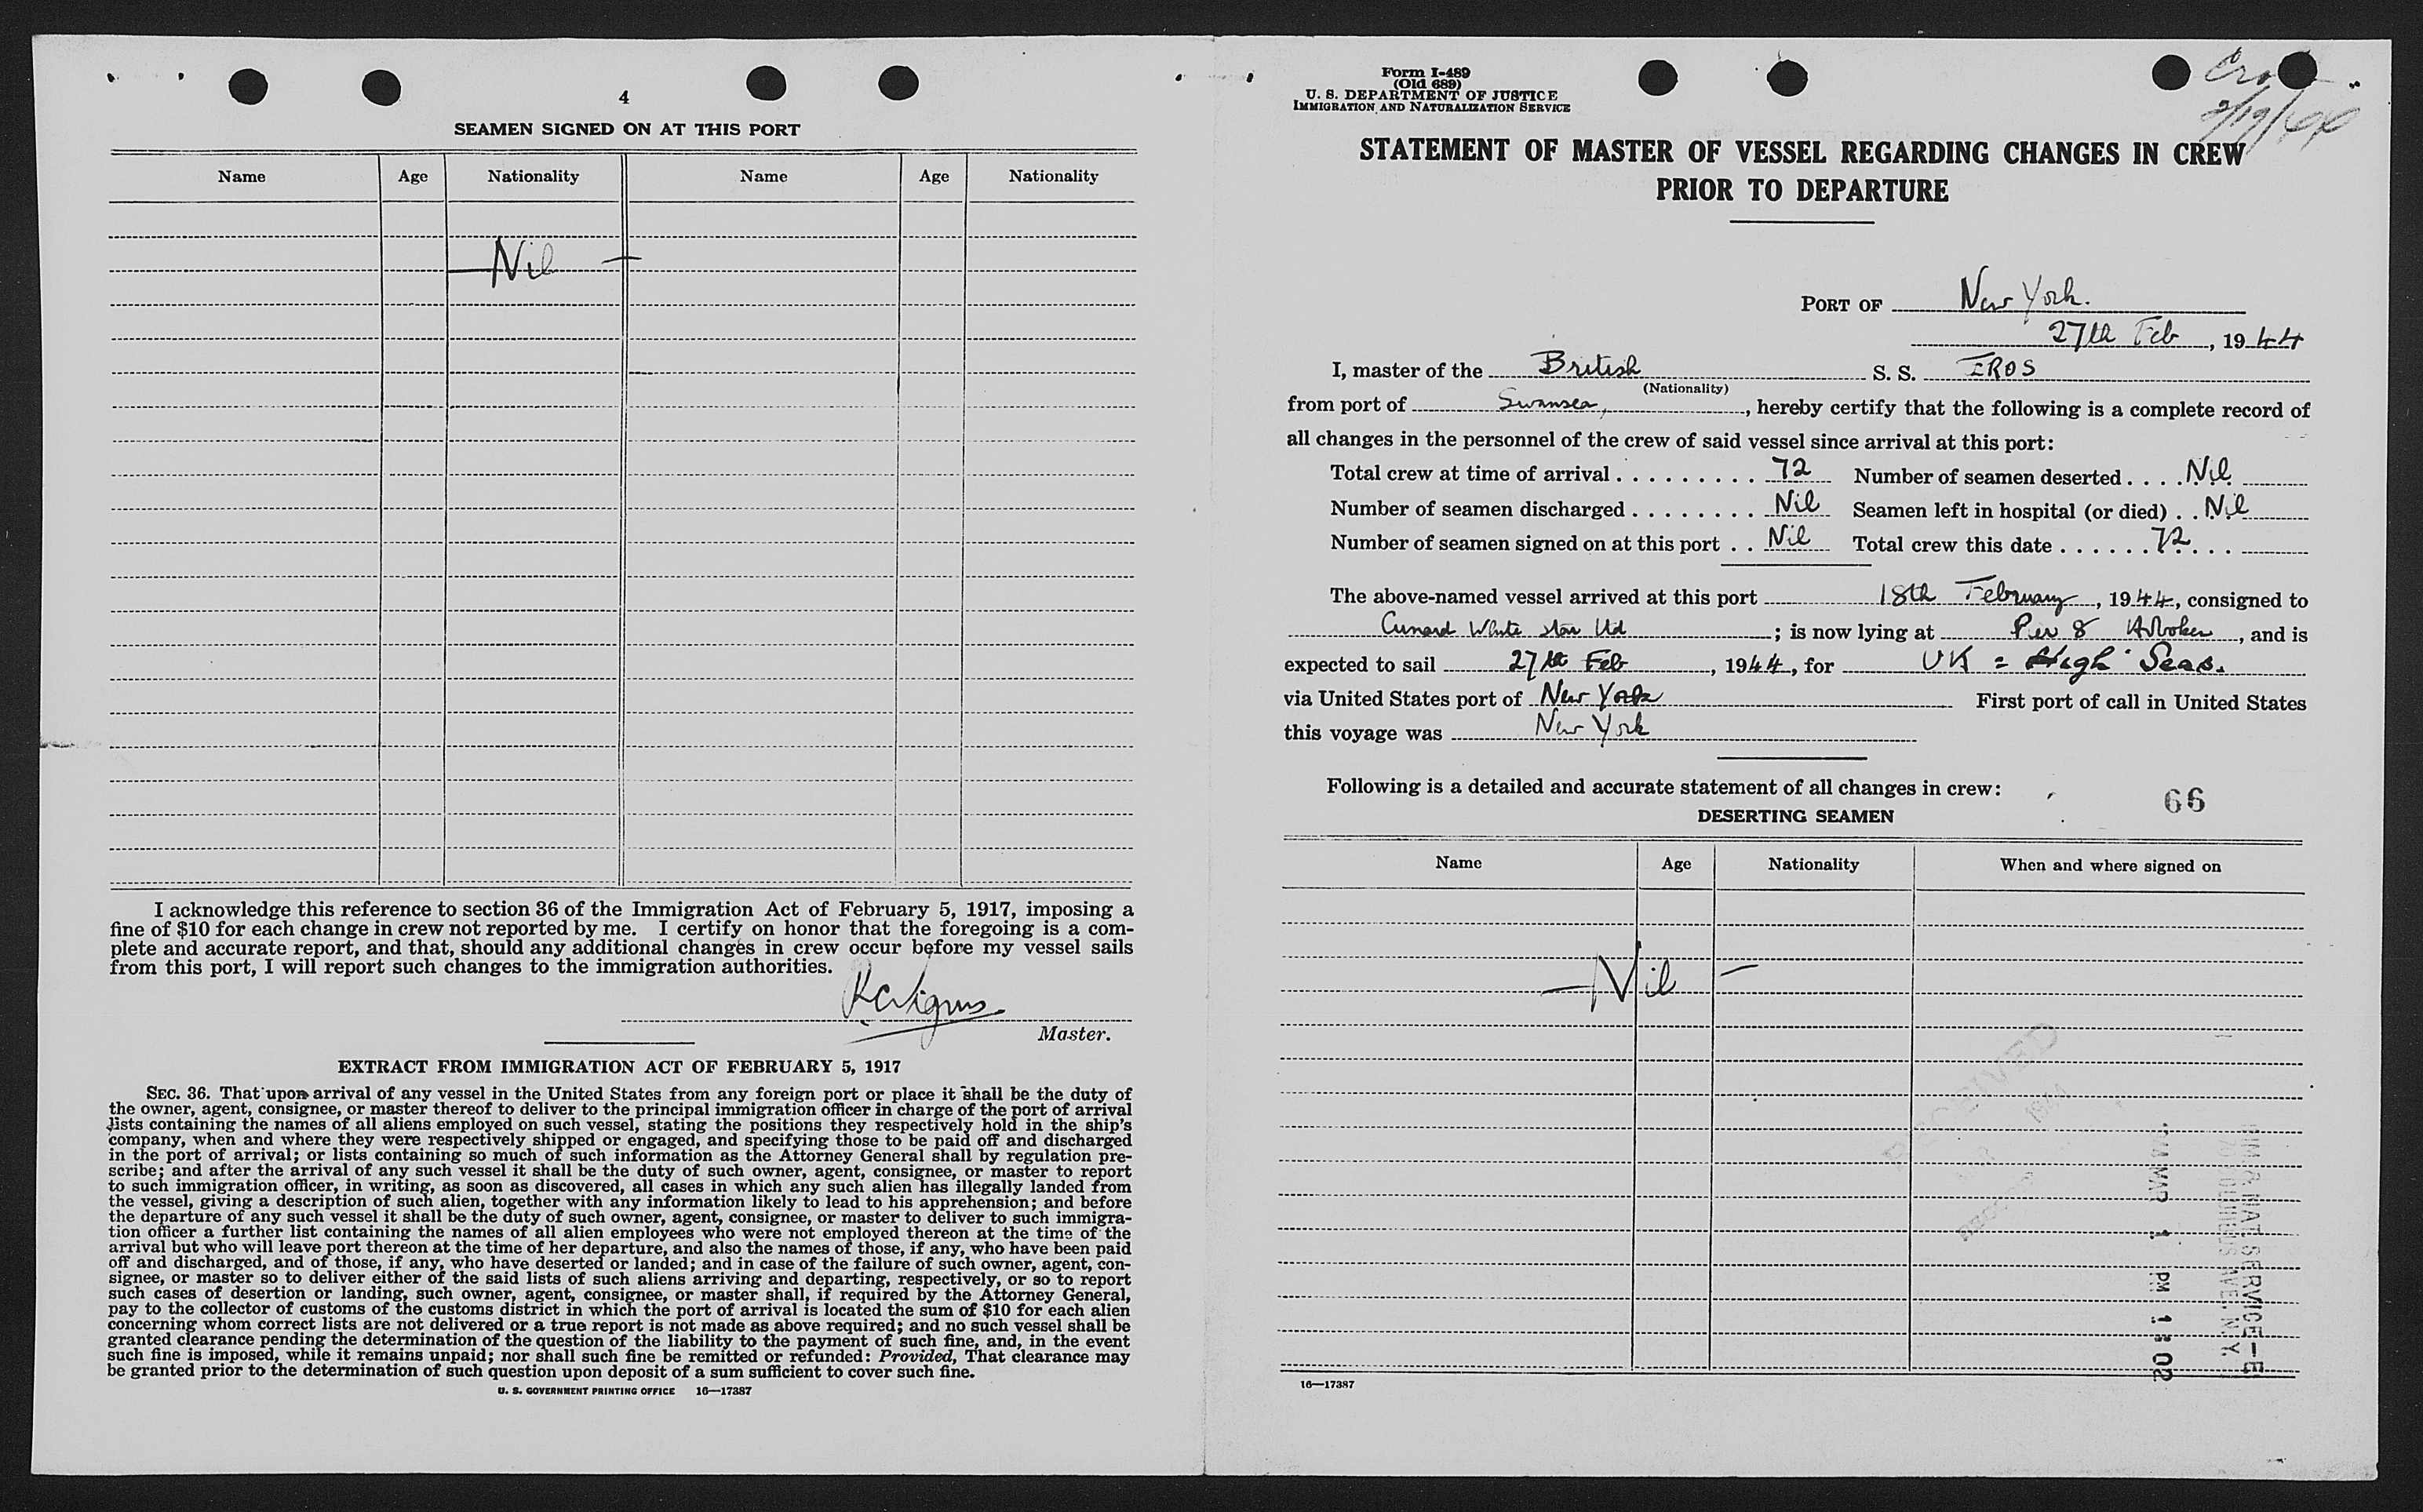 4
SEAMEN SIGNED ON AT THIS PORT
Name Age Nationality Name Age Nationality
Nil
I acknowledge this reference to section 36 of the Immigration Act of February 5, 1917, imposing a
fine of $10 for each change in crew not reported by me. I certify on honor that the foregoing is a com-
plete and accurate report, and that, should any additional changes in crew occur before my vessel sails
from this port, I will report such changes to the immigration authorities.
Master.
EXTRACT FROM IMMIGRATION ACT OF FEBRUARY 5, 1917
SEC. 36. That upon arrival of any vessel in the United States from any foreign port or place it shall be the duty of
the owner, agent, consignee, or master thereof to deliver to the principal immigration officer in charge of the port of arrival
lists containing the names of all aliens employed on such vessel, stating the positions they respectively hold in the ship's
company, when and where they were respectively shipped or engaged, and specifying those to be paid off and discharged
in the port of arrival; or lists containing so much of such information as the Attorney General shall by regulation pre-
scribe; and after the arrival of any such vessel it shall be the duty of such owner, agent, consignee, or master to report
to such immigration officer, in writing, as soon as discovered, all cases in which any such alien has illegally landed from
the vessel, giving a description of such alien, together with any information likely to lead to his apprehension; and before
the departure of any such vessel it shall be the duty of such owner, agent, consignee, or master to deliver to such immigra-
tion officer a further list containing the names of all alien employees who were not employed thereon at the time of the
arrival but who will leave port thereon at the time of her departure, and also the names of those, if any, who have been paid
off and discharged, and of those, if any, who have deserted or landed; and in case of the failure of such owner, agent, con-
signee, or master so to deliver either of the said lists of such aliens arriving and departing, respectively, or so to report
such cases of desertion or landing, such owner, agent, consignee, or master shall, if required by the Attorney General,
pay to the collector of customs of the customs district in which the port of arrival is located the sum of $10 for each alien
concerning whom correct lists are not delivered or a true report is not made as above required; and no such vessel shall be
granted clearance pending the determination of the question of the liability to the payment of such fine, and, in the event
such fine is imposed, while it remains unpaid; nor shall such fine be remitted or refunded: Provided, That clearance may
be granted prior to the determination of such question upon deposit of a sum sufficient to cover such fine.
U. S. GOVERNMENT PRINTING OFFICE 16—17387
Form I-489
(Old 689)
U. S. DEPARTMENT OF JUSTICE
IMMIGRATION AND NATURALIZATION SERVICE
2/19/44
STATEMENT OF MASTER OF VESSEL REGARDING CHANGES IN CREW
PRIOR TO DEPARTURE
PORT OF New York.
27th Feb, 1944
I, master of the British S. S. EROS
(Nationality)
from port of Swansea, , hereby certify that the following is a complete record of
all changes in the personnel of the crew of said vessel since arrival at this port:
Total crew at time of arrival . . . . . . . . . 72 Number of seamen deserted . . . . Nil
Number of seamen discharged . . . . . . . . Nil Seamen left in hospital (or died) . . Nil
Number of seamen signed on at this port . . Nil Total crew this date . . . . . . 72 . . .
The above-named vessel arrived at this port 18th February, 1944, consigned to
Cunard White Star Ltd ; is now lying at Pier 8 Hoboken, and is
expected to sail 27th Feb, 1944, for UK = High Seas.
via United States port of New York First port of call in United States
this voyage was New York
Following is a detailed and accurate statement of all changes in crew:
66
DESERTING SEAMEN
Name Age Nationality When and where signed on
Nil
RECEIVED
1944
MAR 1 PM 1 02
16—17387